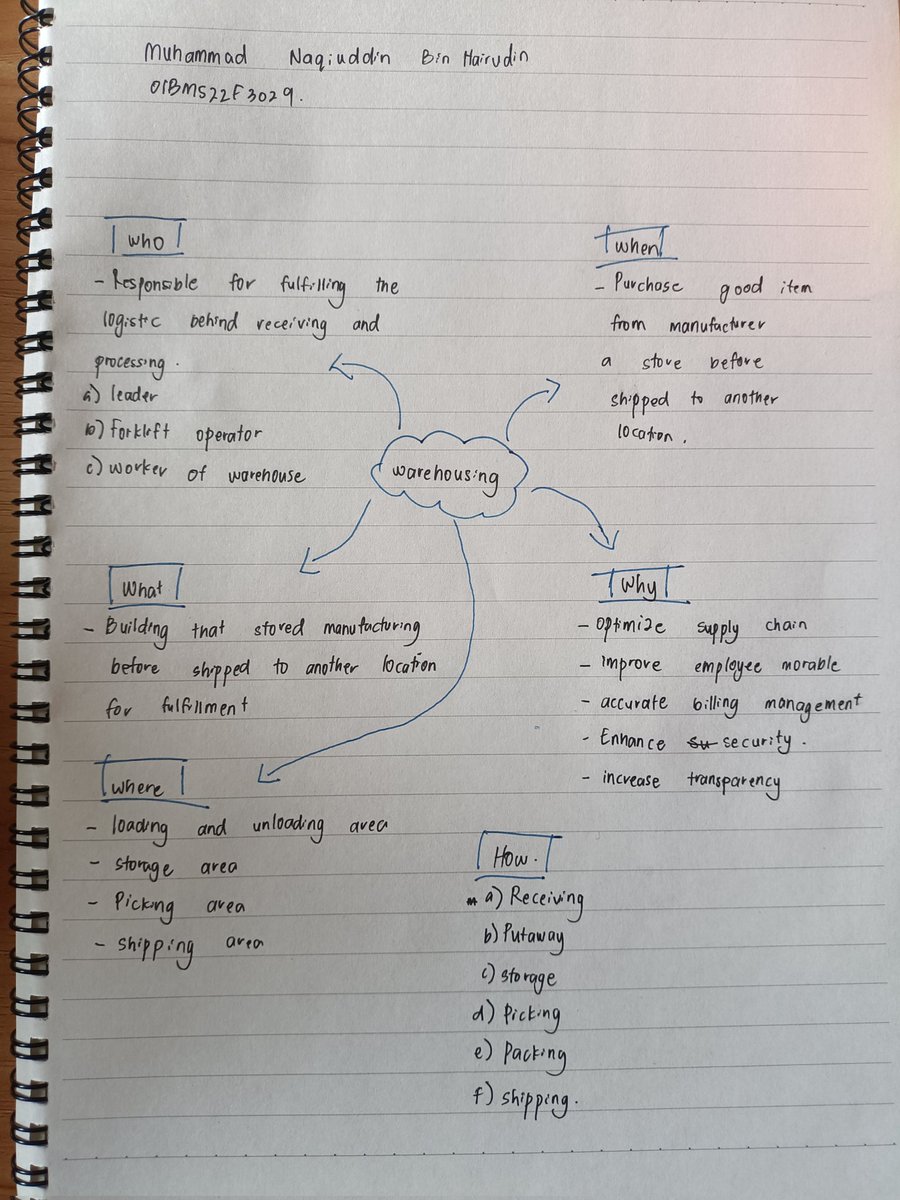 Muhammad Naqiuddin Bin Hairudin
01BMS22F3029.
who
- Responsible for fulfilling the
logistic behind receiving and
processing.
a) leader
b) Forklift operator
c) worker of warehouse
when
- Purchase good item
from manufacturer
a store before
shipped to another
location.
warehousing
What
- Building that stored manufacturing
before shipped to another location
for fulfillment
Why
- optimize supply chain
- improve employee morable
- accurate billing management
- Enhance su security.
- increase transparency
where
- loading and unloading area
- storage area
- Picking area
- shipping area
How.
a) Receiving
b) Putaway
c) storage
d) Picking
e) Packing
f) shipping.